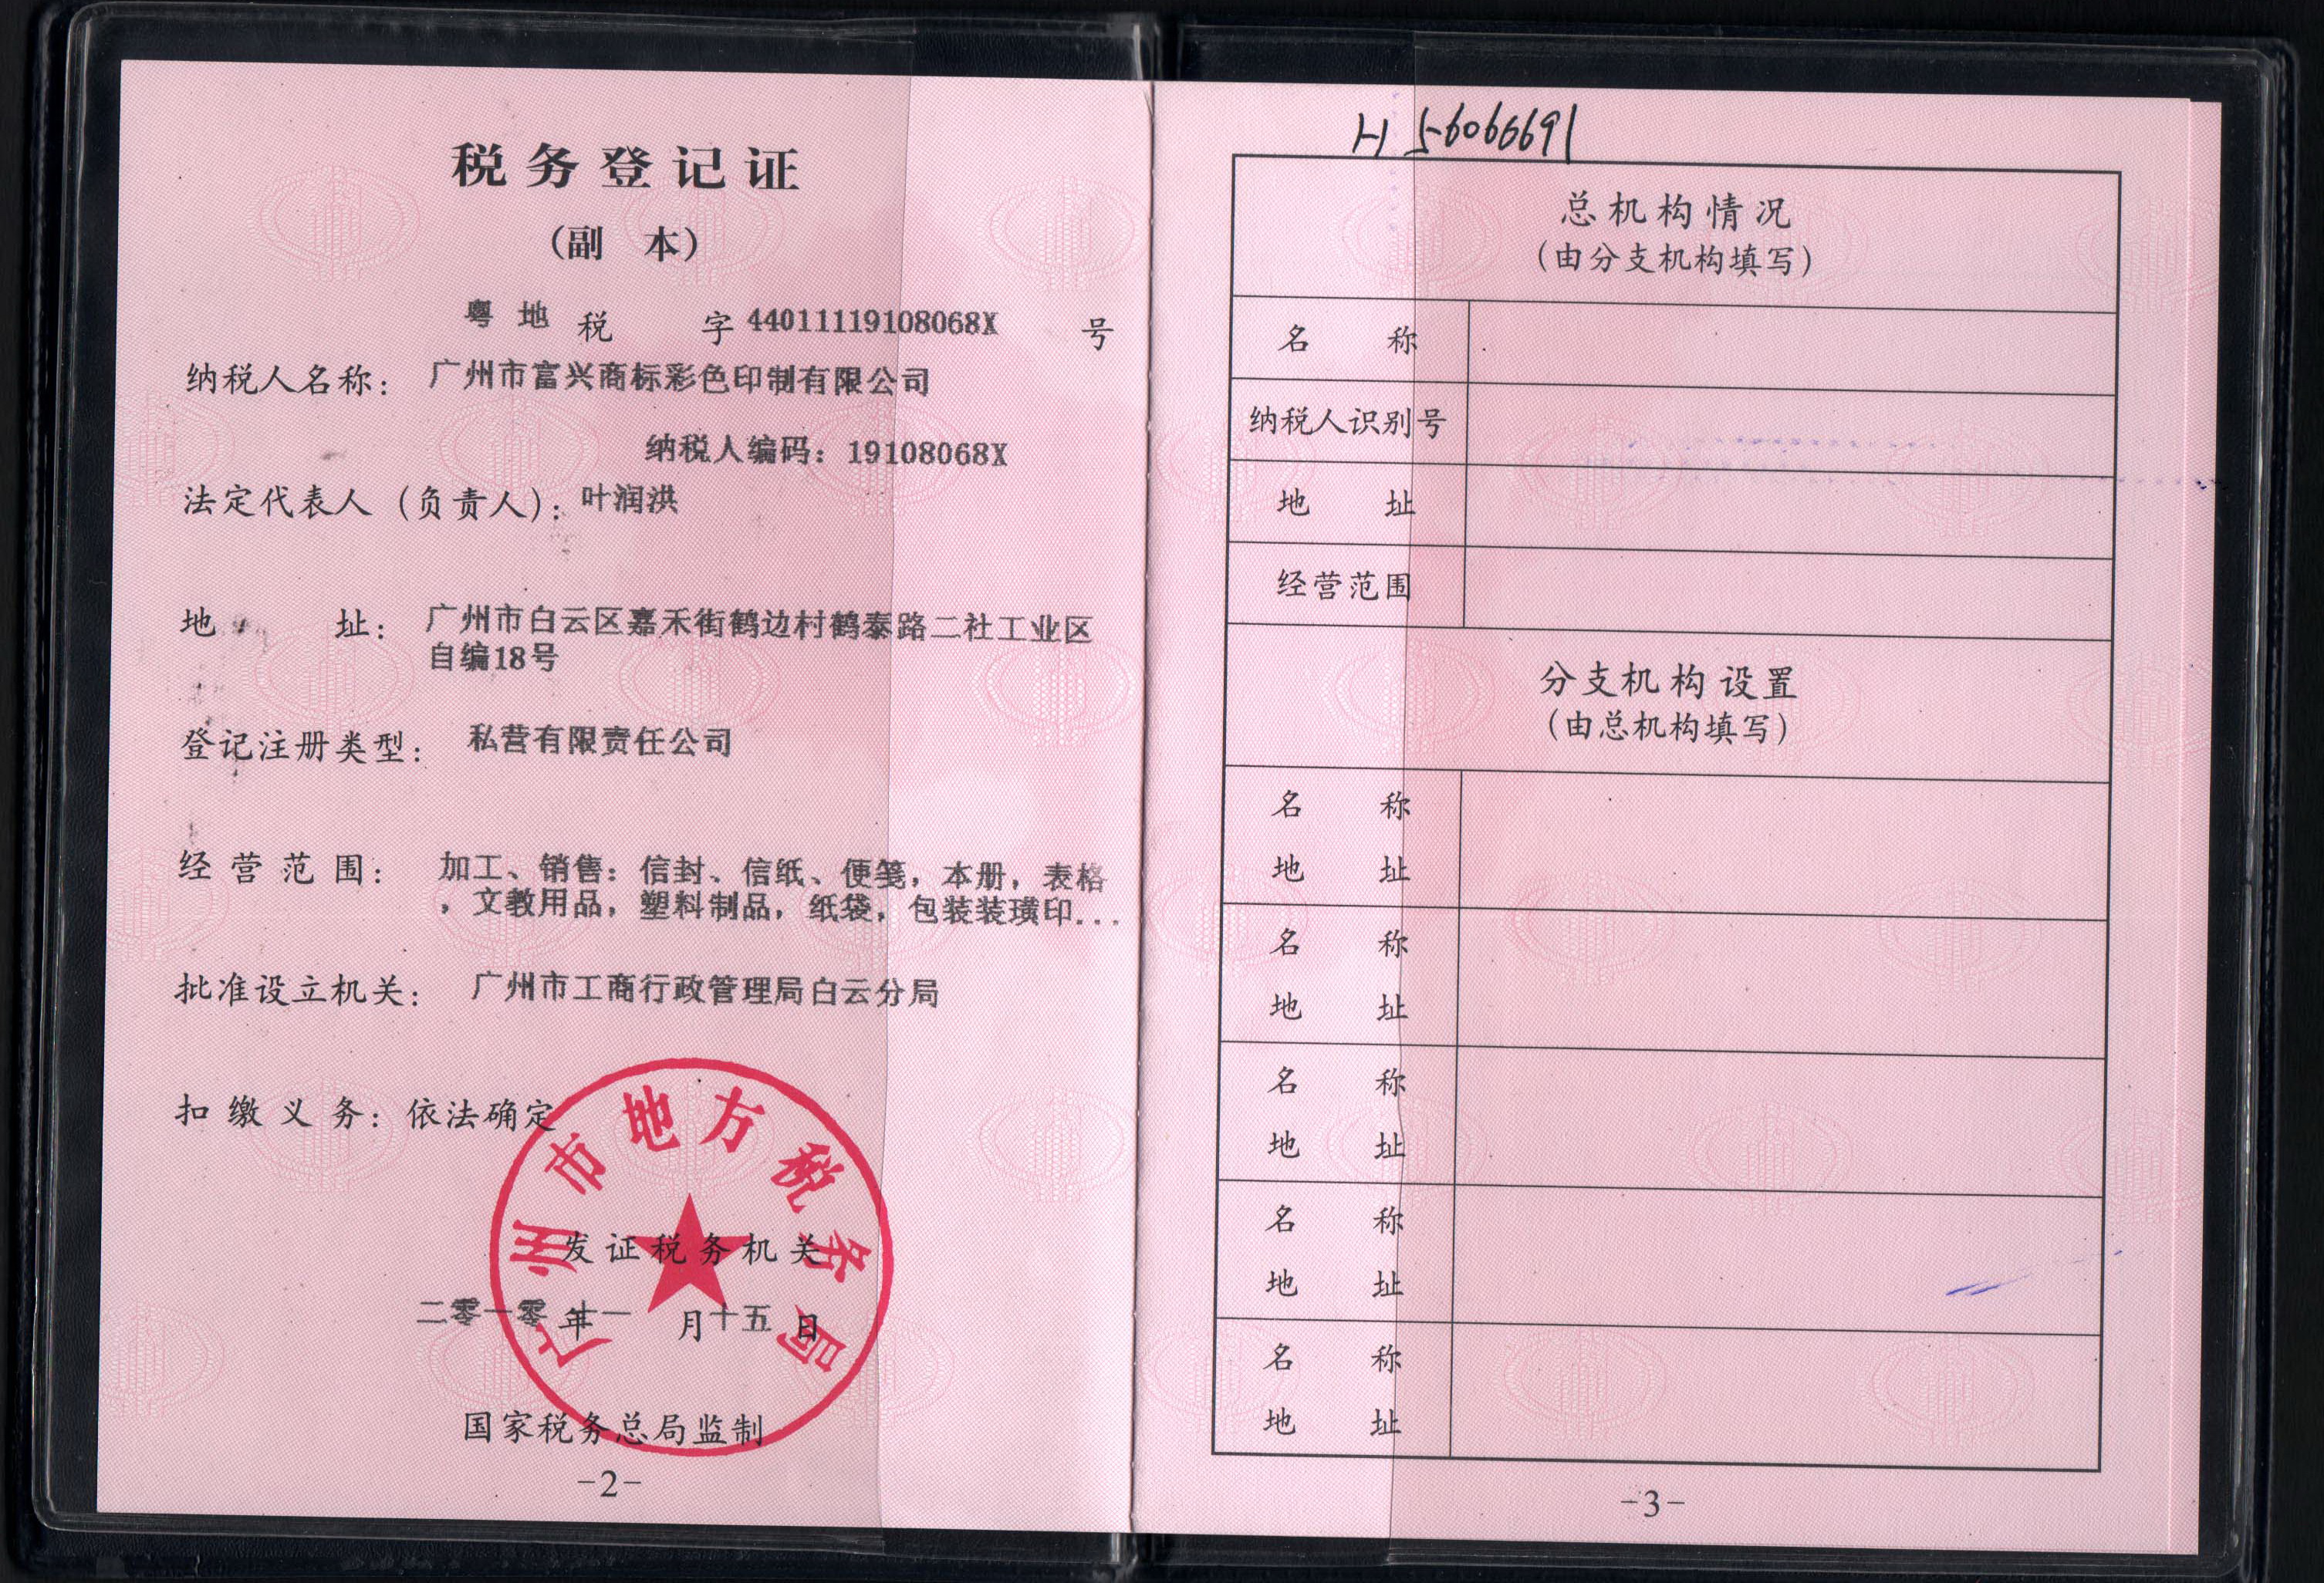 税务登记证
(副 本)
粤地 税 字 44011119108068X 号
纳税人名称: 广州市富兴商标彩色印制有限公司
纳税人编码: 19108068X
法定代表人(负责人): 叶润洪
地 址: 广州市白云区嘉禾街鹤边村鹤泰路二社工业区
自编18号
登记注册类型: 私营有限责任公司
经营范围: 加工、销售: 信封、信纸、便笺, 本册, 表格
, 文教用品, 塑料制品, 纸袋, 包装装璜印...
批准设立机关: 广州市工商行政管理局白云分局
扣缴义务: 依法确定
广州市地方税务局
发证税务机关
二零一零 年 十一 月 十五 日
国家税务总局监制
-2-
H 56066691
总机构情况
(由分支机构填写)
名 称
纳税人识别号
地 址
经营范围
分支机构设置
(由总机构填写)
名 称
地 址
名 称
地 址
名 称
地 址
名 称
地 址
名 称
地 址
-3-